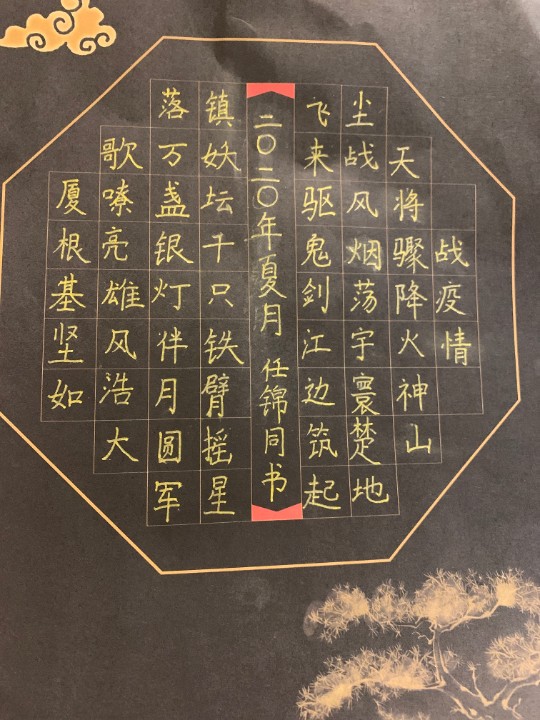 战疫情
天将骤降火神山
尘战风烟荡宇寰楚地
飞来驱鬼剑江边筑起
二〇二〇年夏月 任锦同书
镇妖坛千只铁臂摇星
落万盏银灯伴月圆军
歌嘹亮雄风浩大
厦根基坚如